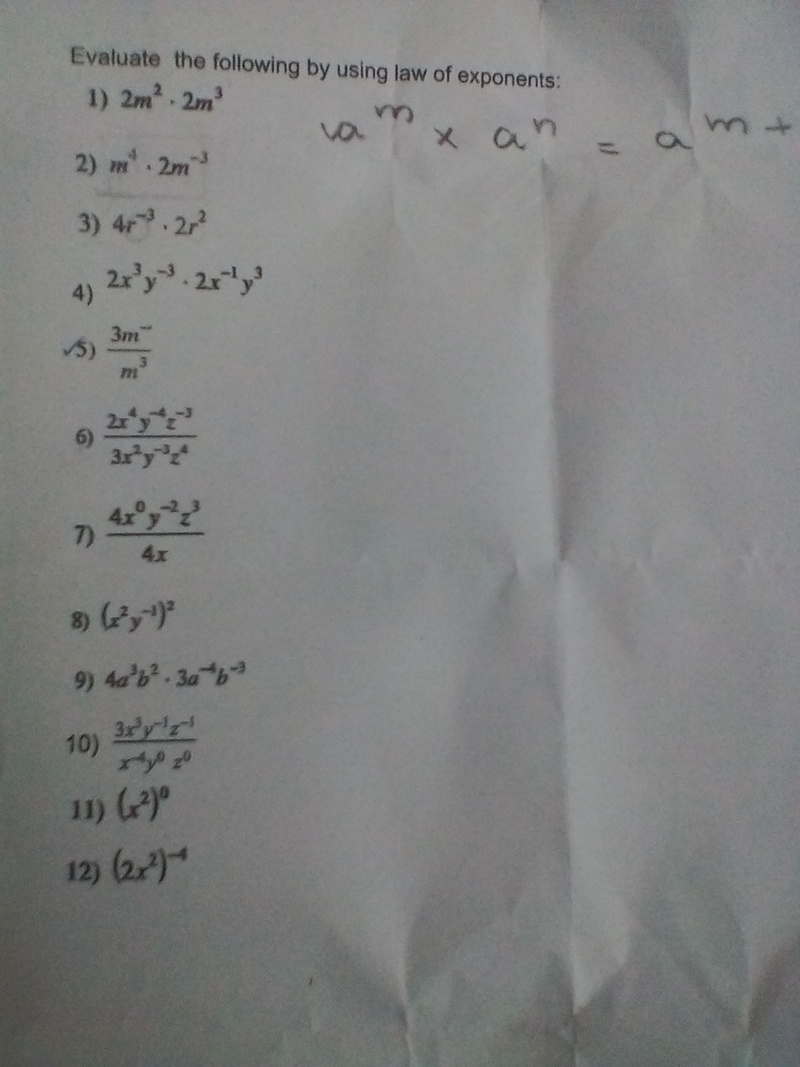 Evaluate the following by using law of exponents:
1) 2m² · 2m³
aᵐ × aⁿ = aᵐ⁺
2) m⁴ · 2m⁻³
3) 4r⁻³ · 2r²
4) 2x³y⁻³ · 2x⁻¹y³
✓5) 3m⁻ / m³
6) 2x⁴y⁻⁴z⁻³ / 3x²y⁻³z⁴
7) 4x⁰y⁻²z³ / 4x
8) (x²y⁻¹)²
9) 4a³b² · 3a⁻⁴b⁻³
10) 3x³y⁻¹z⁻¹ / x⁻⁴y⁰ z⁰
11) (x²)⁰
12) (2x²)⁻⁴